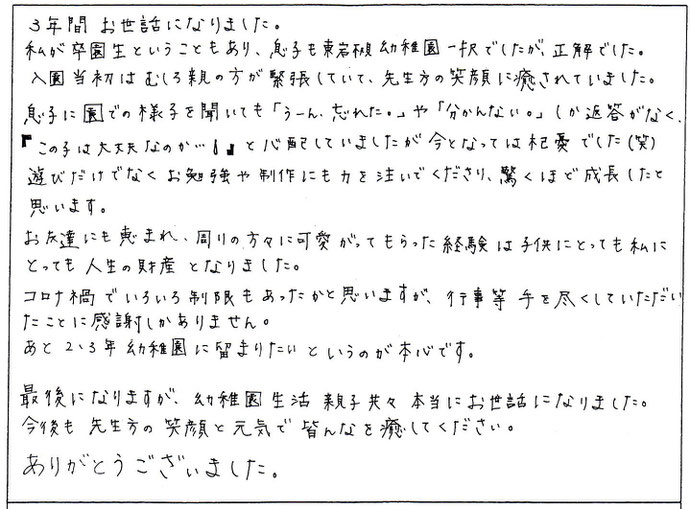 3年間 お世話になりました。
私が卒園生ということもあり、息子も東岩槻幼稚園一択でしたが、正解でした。
入園当初はむしろ親の方が緊張していて、先生方の笑顔に癒されていました。
息子に園での様子を聞いても「うーん、忘れた。」や「分かんない。」しか返答がなく、
『この子は大丈夫なのか…!』と心配していましたが今となっては杞憂でした(笑)
遊びだけでなくお勉強や制作にも力を注いでくださり、驚くほど成長したと
思います。
お友達にも恵まれ、周りの方々に可愛がってもらった経験は子供にとっても私に
とっても人生の財産となりました。
コロナ禍でいろいろ制限もあったかと思いますが、行事等手を尽くしていただい
たことに感謝しかありません。
あと2、3年幼稚園に留まりたいというのが本心です。
最後になりますが、幼稚園生活親子共々本当にお世話になりました。
今後も先生方の笑顔と元気で皆んなを癒してください。
ありがとうございました。